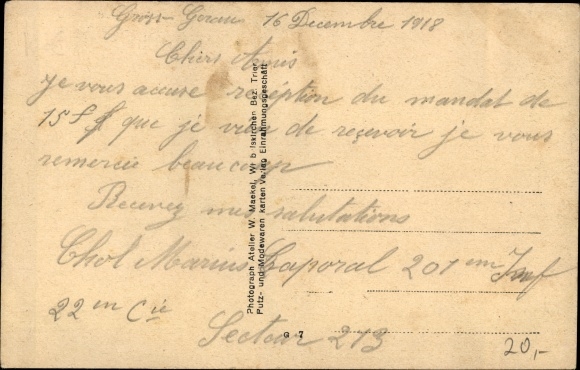 Gross-Gerau 16 Decembre 1918
Chers Amis
je vous accuse reception du mandat de
15f que je vien de reçevoir je vous
remercie beaucoup
Recevez mes salutations
Chol Marius Caporal 201 em Inf
22 em Cie
Secteur 213
Photograph Atelier W. Maekel, Wi b lskirchen Bez. Trier
Putz- und Modewaren karten Verlag Einrahmungsgeschäft
G 7
20,-